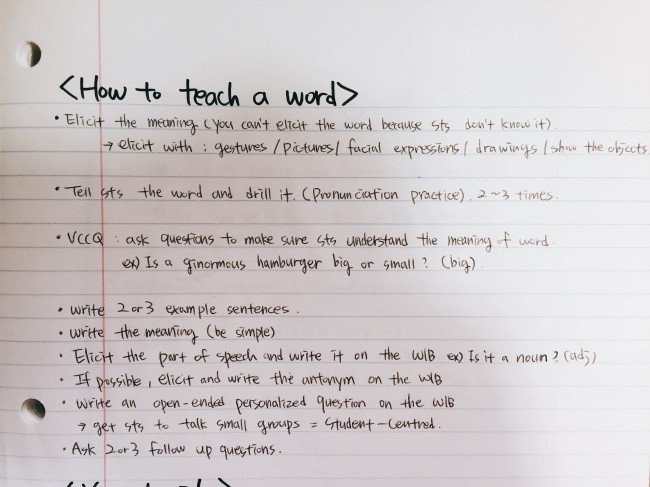 <How to teach a word>
• Elicit the meaning (you can't elicit the word because sts don't know it).
→ elicit with : gestures / pictures / facial expressions / drawings / show the objects
• Tell sts the word and drill it. (Pronunciation practice). 2~3 times.
• VCCQ : ask questions to make sure sts understand the meaning of word.
ex) Is a ginormous hamburger big or small? (big).
• write 2 or 3 example sentences.
• write the meaning (be simple)
• Elicit the part of speech and write it on the W/B ex) Is it a noun? (adj)
• If possible, elicit and write the antonym on the W/B
• Write an open-ended personalized question on the W/B
→ get sts to talk small groups = Student-Centred.
• Ask 2 or 3 follow up questions.